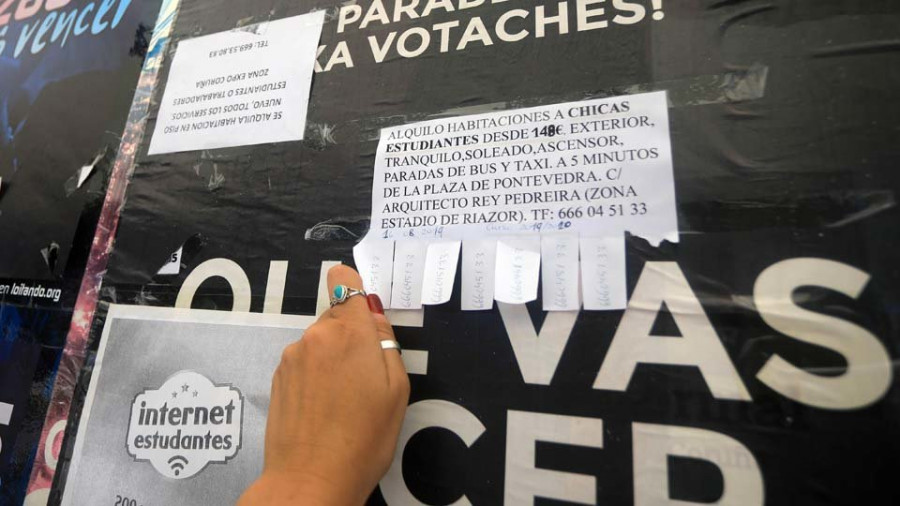 PARAB
XA VOTACHES!
SE ALQUILA HABITACION EN PISO
NUEVO, TODOS LOS SERVICIOS.
ESTUDIANTES O TRABAJADORES
ZONA EXPO CORUÑA
TEL: 669.53.80.83
ALQUILO HABITACIONES A CHICAS
ESTUDIANTES DESDE 148€. EXTERIOR,
TRANQUILO,SOLEADO,ASCENSOR,
PARADAS DE BUS Y TAXI. A 5 MINUTOS
DE LA PLAZA DE PONTEVEDRA. C/
ARQUITECTO REY PEDREIRA (ZONA
ESTADIO DE RIAZOR). TF: 666 04 51 33
2019
666045133
666045133
666045133
666045133
666045133
vencer
en loitando.org
QU E VAS
CER
internet
estudantes